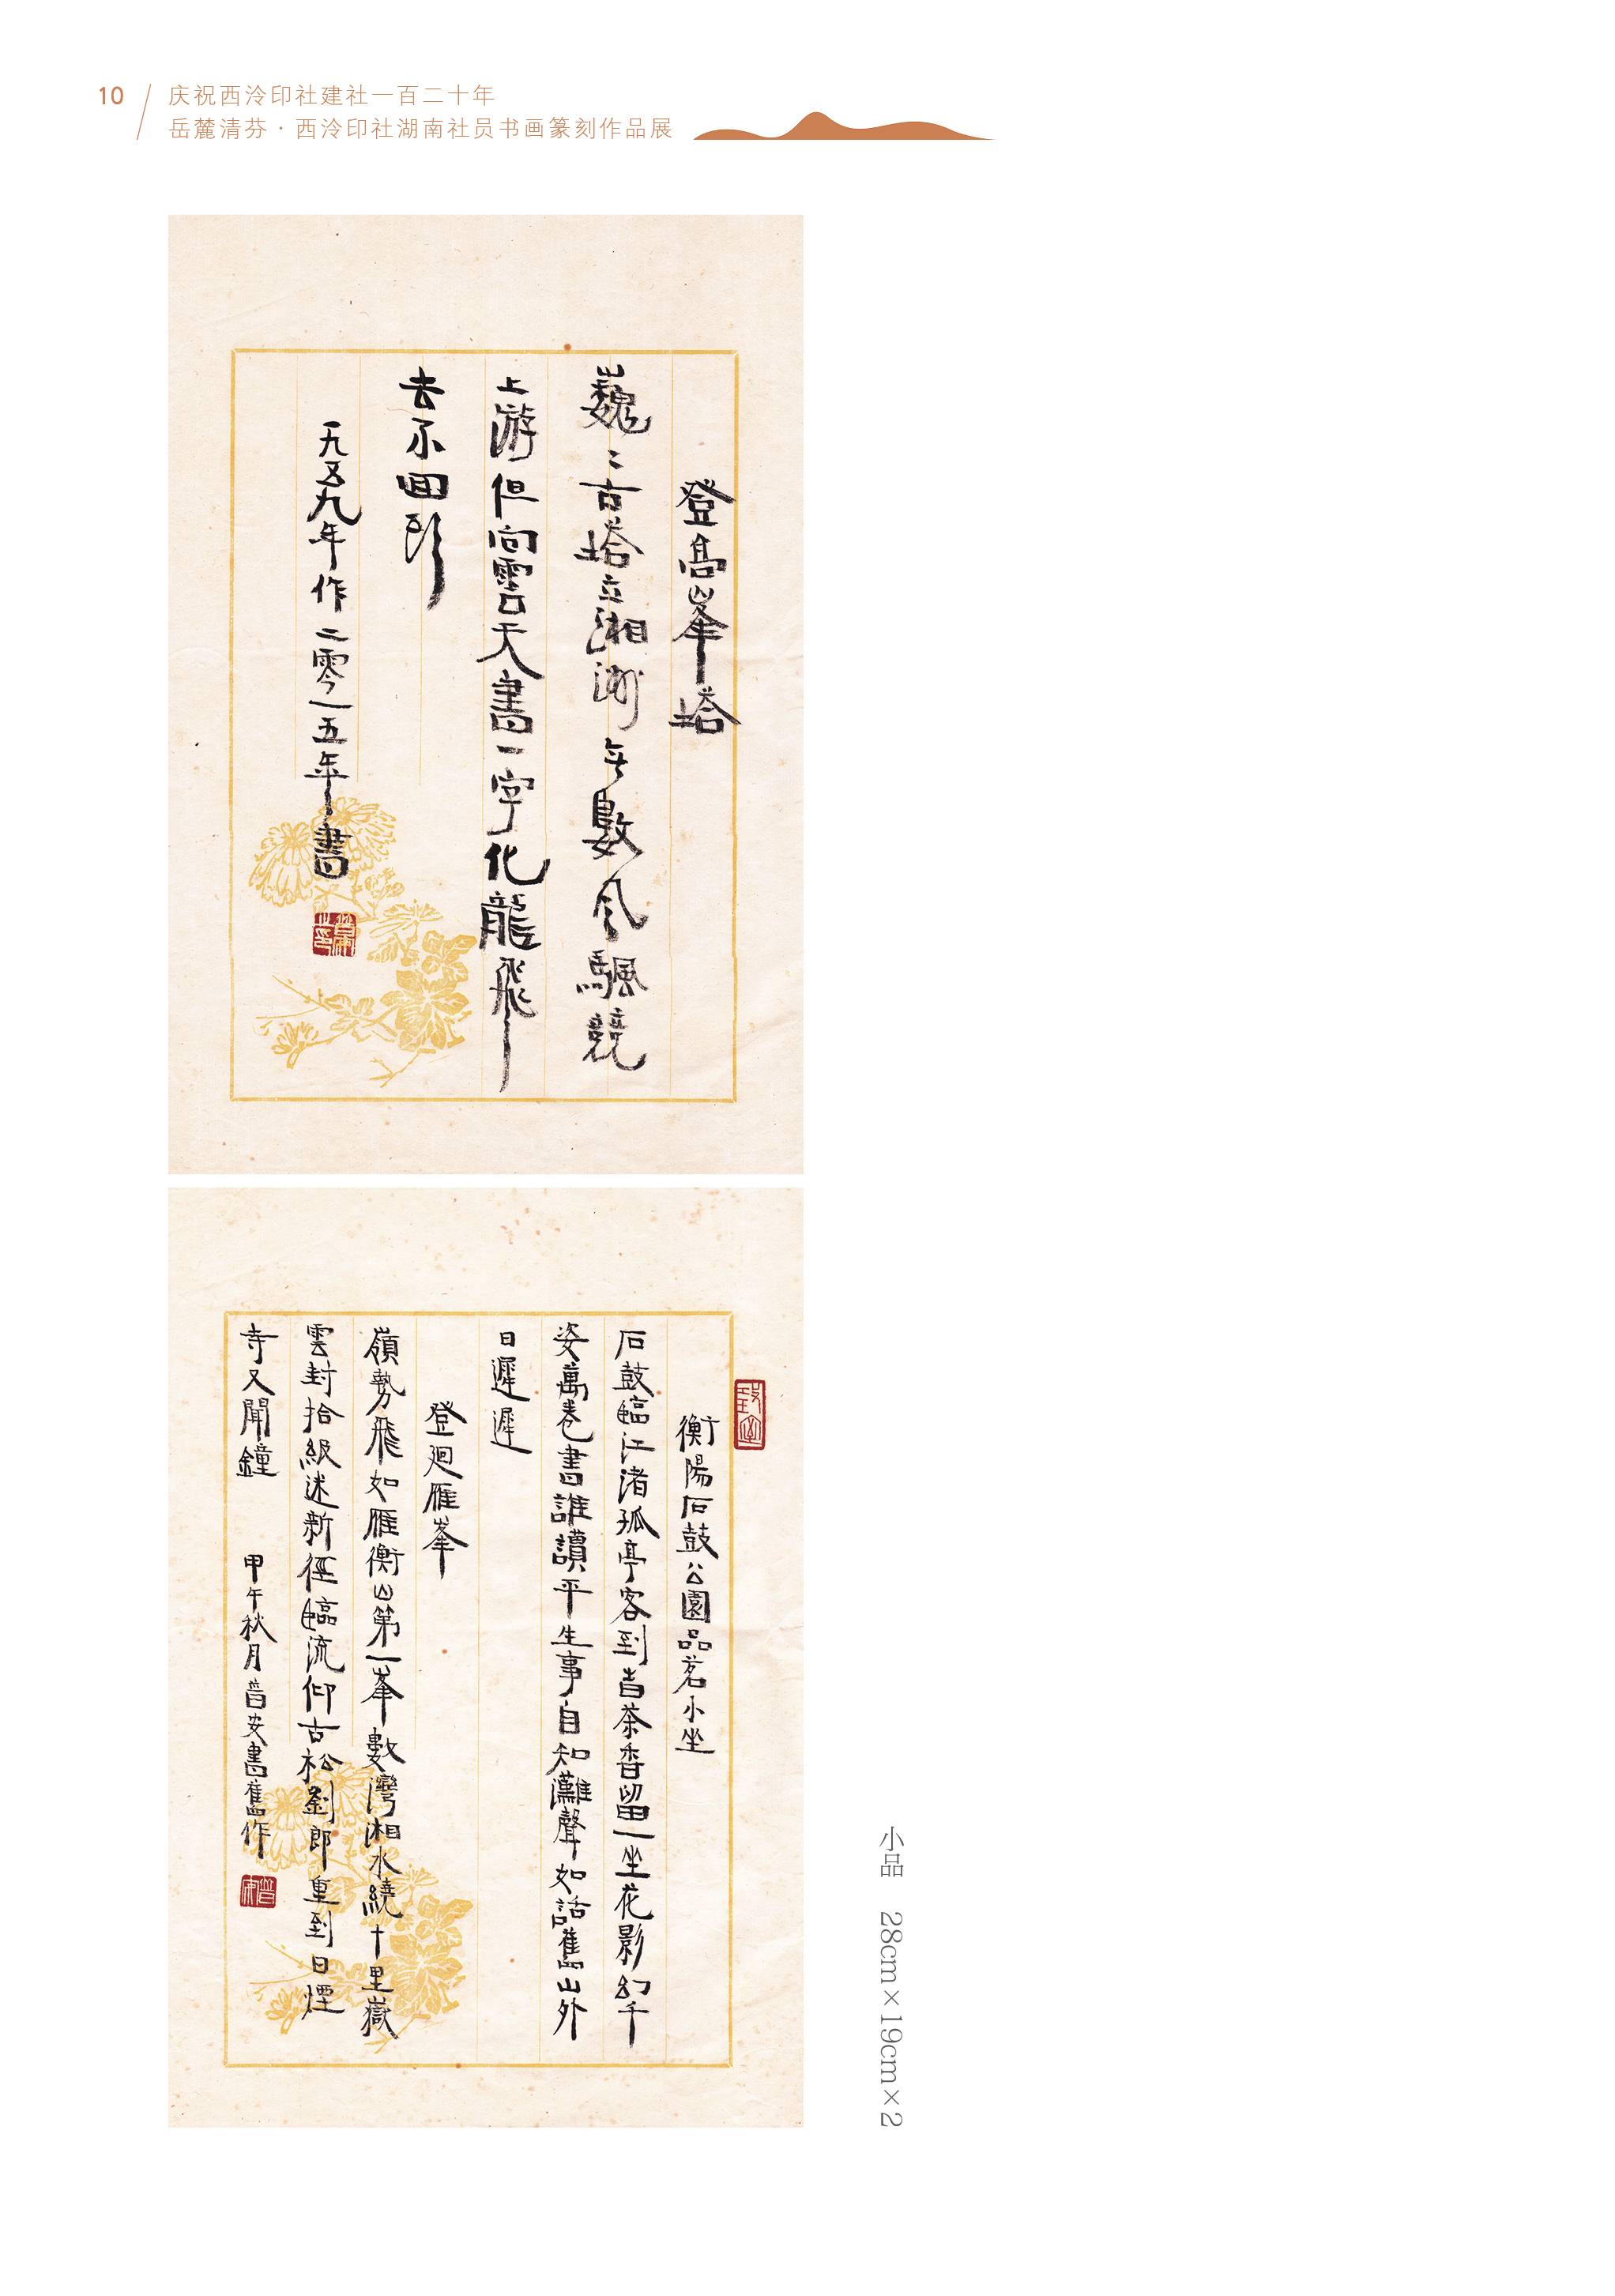 10
庆祝西泠印社建社一百二十年
岳麓清芬·西泠印社湖南社员书画篆刻作品展
登高峯塔
巍〻古塔立湘洲 无數風颿競
上游但向雲天書一字化龍飛
去不回頭
一九五九年作二零一五年書
衡陽石鼓公園品茗小坐
石鼓臨江渚孤亭客到旹茶香留一坐花影幻千
姿萬卷書誰讀平生事自知灘聲如話舊山外
日遲遲
登廻雁峯
嶺勢飛如雁衡山第一峯數灣湘水繞十里嶽
雲封拾級迷新徑臨流仰古松劉郎重到日煙
寺又聞鐘
甲午秋月晉安書舊作
小品 28cm×19cm×2